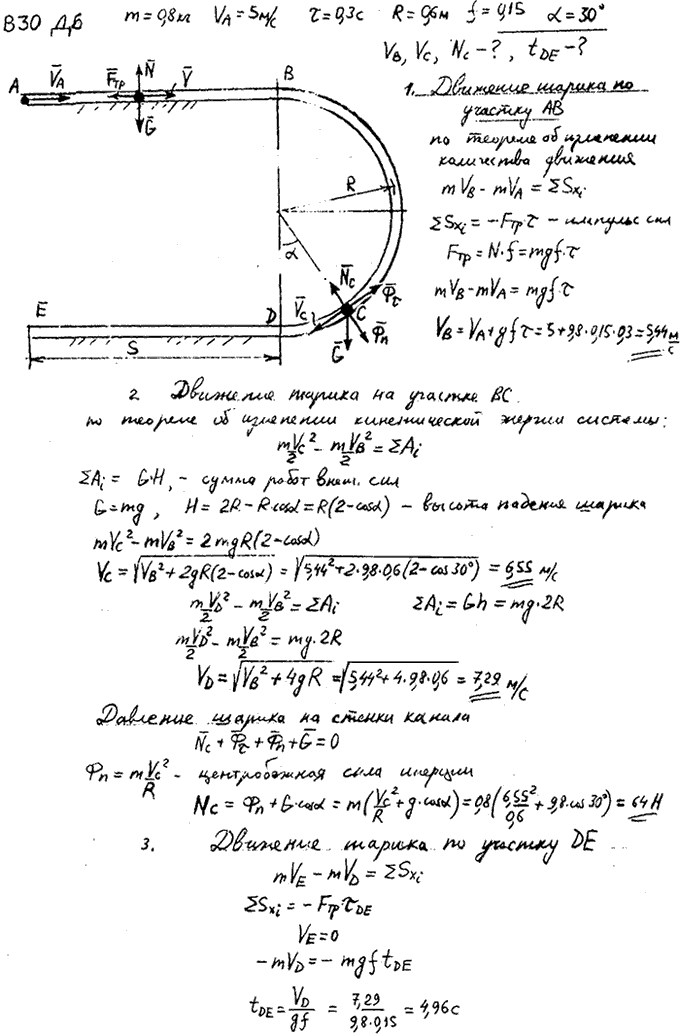 В30 Д6 m = 0,8 кг V_A = 5 м/с τ = 0,3 с R = 0,6 м f = 0,15 α = 30°
V_B, V_C, N_C - ? , t_DE - ?
A V̄_A F̄_тр N̄ V̄ B
Ḡ
R
α
N̄_C Φ̄_τ
V̄_C C
Ē D Φ̄_n
Ḡ
S
1. Движение шарика по
участку AB
по теореме об изменении
количества движения
mV_B - mV_A = ΣS_xi
ΣS_xi = -F_тр·τ - импульс сил
F_тр = N·f = mgf·τ
mV_B - mV_A = mgf·τ
V_B = V_A + gfτ = 5 + 9,8·0,15·0,3 = 5,44 м/с
2. Движение шарика на участке BC.
по теореме об изменении кинетической энергии системы:
mV_C²/2 - mV_B²/2 = ΣA_i
ΣA_i = G·H, - сумма работ внеш. сил
G = mg, H = 2R - R·cosα = R(2-cosα) - высота падения шарика
mV_C² - mV_B² = 2mgR(2-cosα)
V_C = √(V_B² + 2gR(2-cosα)) = √(5,44² + 2·9,8·0,6(2-cos30°)) = 6,55 м/с
mV_D²/2 - mV_B²/2 = ΣA_i ΣA_i = Gh = mg·2R
mV_D²/2 - mV_B²/2 = mg·2R
V_D = √(V_B² + 4gR) = √(5,44² + 4·9,8·0,6) = 7,29 м/с
Давление шарика на стенки канала
N̄_C + Φ̄_τ + Φ̄_n + Ḡ = 0
Φ_n = mV_C²/R - центробежная сила инерции
N_C = Φ_n + G·cosα = m(V_C²/R + g·cosα) = 0,8(6,55²/0,6 + 9,8·cos30°) = 64 Н
3. Движение шарика по участку DE
mV_E - mV_D = ΣS_xi
ΣS_xi = -F_тр·τ_DE
V_E = 0
-mV_D = -mgf t_DE
t_DE = V_D/gf = 7,29/9,8·0,15 = 4,96 с